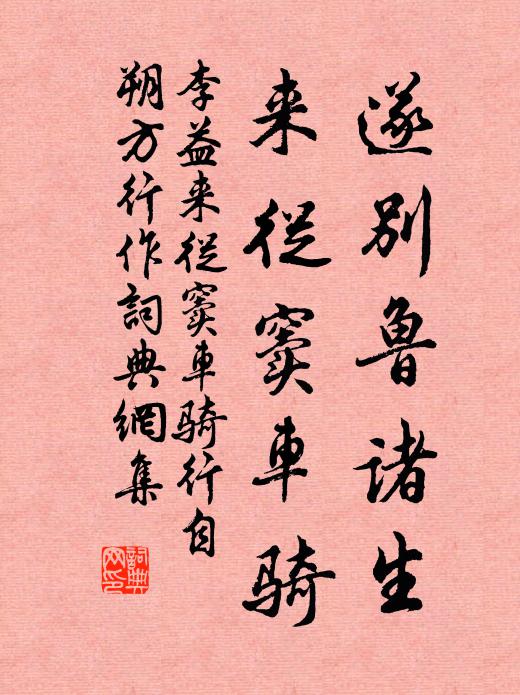 遂别魯诸生
来從窦車骑
李益来從窦車骑行自
朔方行作詞典網集
詞典网印